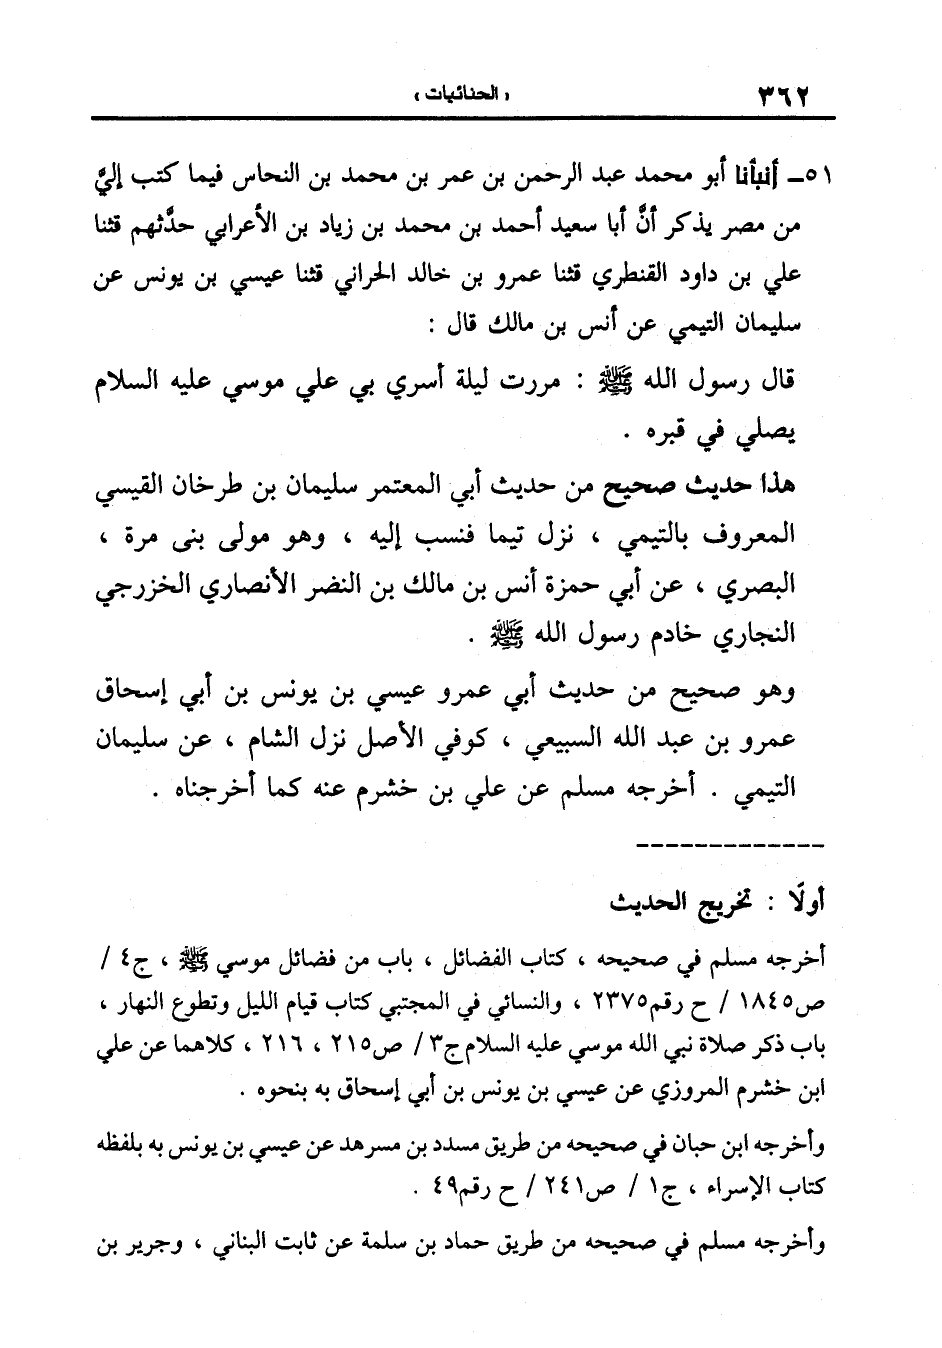 ٣٦٢ « الحنائيات »
٥١ـ أنبأنا أبو محمد عبد الرحمن بن عمر بن محمد بن النحاس فيما كتب إليَّ
من مصر يذكر أنَّ أبا سعيد أحمد بن محمد بن زياد بن الأعرابي حدَّثهم قثنا
علي بن داود القنطري قثنا عمرو بن خالد الحراني قثنا عيسي بن يونس عن
سليمان التيمي عن أنس بن مالك قال :
قال رسول الله ﷺ : مررت ليلة أسري بي علي موسي عليه السلام
يصلي في قبره .
هذا حديث صحيح من حديث أبي المعتمر سليمان بن طرخان القيسي
المعروف بالتيمي ، نزل تيما فنسب إليه ، وهو مولى بنى مرة ،
البصري ، عن أبي حمزة أنس بن مالك بن النضر الأنصاري الخزرجي
النجاري خادم رسول الله ﷺ .
وهو صحيح من حديث أبي عمرو عيسي بن يونس بن أبي إسحاق
عمرو بن عبد الله السبيعي ، كوفي الأصل نزل الشام ، عن سليمان
التيمي . أخرجه مسلم عن علي بن خشرم عنه كما أخرجناه .
أولًا : تخريج الحديث
أخرجه مسلم في صحيحه ، كتاب الفضائل ، باب من فضائل موسي ﷺ ، ج٤ /
ص١٨٤٥ / ح رقم٢٣٧٥ ، والنسائي في المجتبي كتاب قيام الليل وتطوع النهار ،
باب ذكر صلاة نبي الله موسي عليه السلام ج٣ / ص٢١٥ ، ٢١٦ ، كلاهما عن علي
ابن خشرم المروزي عن عيسي بن يونس بن أبي إسحاق به بنحوه .
وأخرجه ابن حبان في صحيحه من طريق مسدد بن مسرهد عن عيسي بن يونس به بلفظه
كتاب الإسراء ، ج١ / ص٢٤١ / ح رقم٤٩ .
وأخرجه مسلم في صحيحه من طريق حماد بن سلمة عن ثابت البناني ، وجرير بن